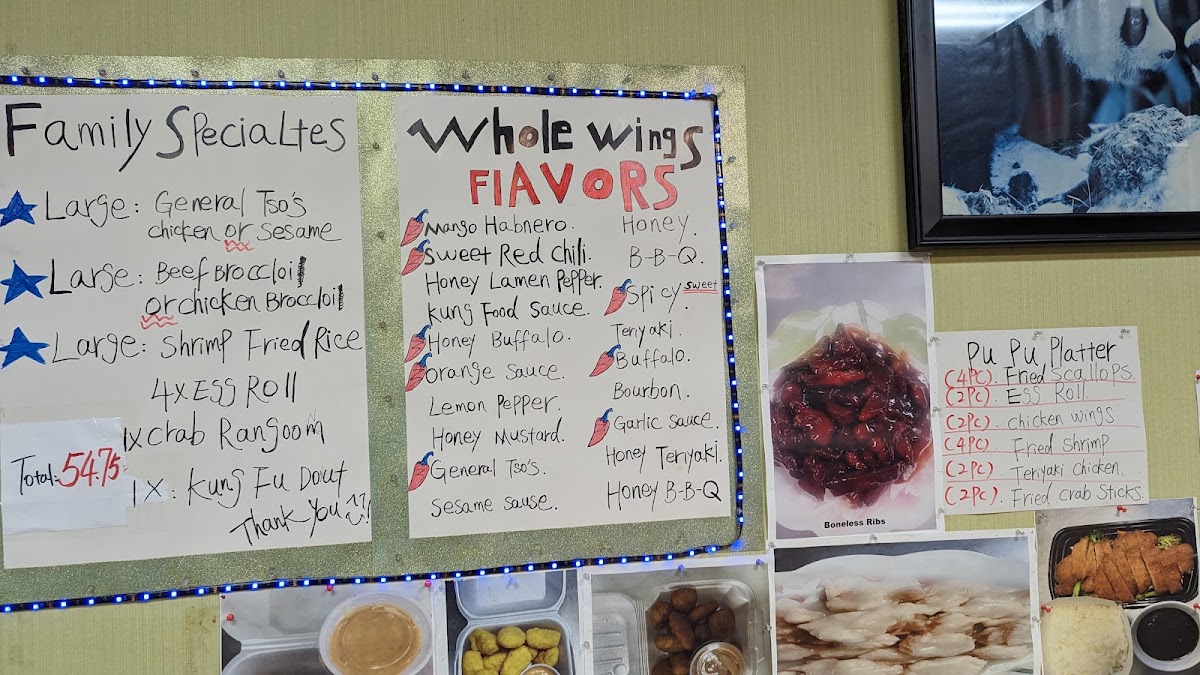 Family Specialtes
Large: General Tso's
chicken or Sesame
Large: Beef Broccloi
or chicken Broccloi
Large: Shrimp Fried Rice
4x Egg Roll
1x crab Rangoom
1x: Kung Fu Dout
Total: 54.75
Thank You
Whole Wings
FlAVORS
Mango Habnero.
Sweet Red Chili.
Honey Lamen Pepper.
Kung Food Sauce.
Honey Buffalo.
Orange Sauce.
Lemon Pepper.
Honey Mustard.
General Tso's.
Sesame sause.
Honey.
B-B-Q.
Spicy sweet
Teriyaki.
Buffalo.
Bourbon.
Garlic sauce.
Honey Teriyaki.
Honey B-B-Q
Boneless Ribs
Pu Pu Platter
(4PC). Fried Scallops.
(2PC). Egg Roll.
(2PC). chicken wings
(4PC). Fried shrimp
(2PC) Teriyaki chicken.
(2PC). Fried crab Sticks.